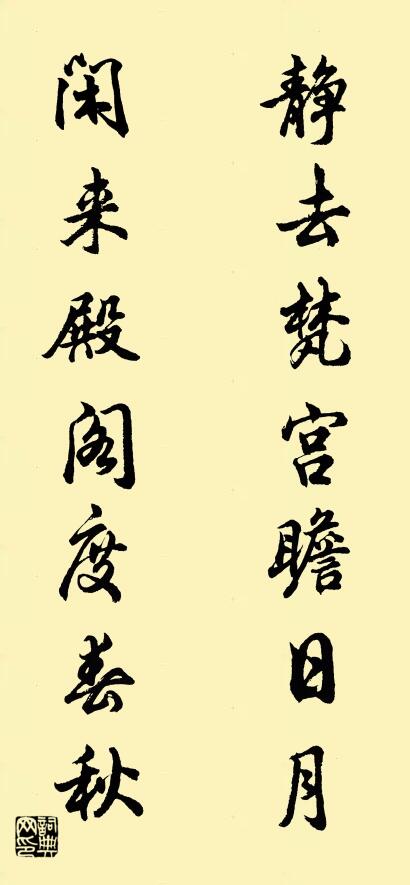 静去梵宫瞻日月
闲来殿阁度春秋
詞典网印